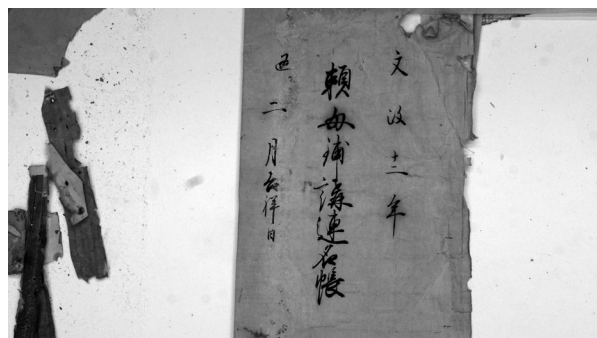 文政十二年
頼母補講連名帳
丑二月吉祥日